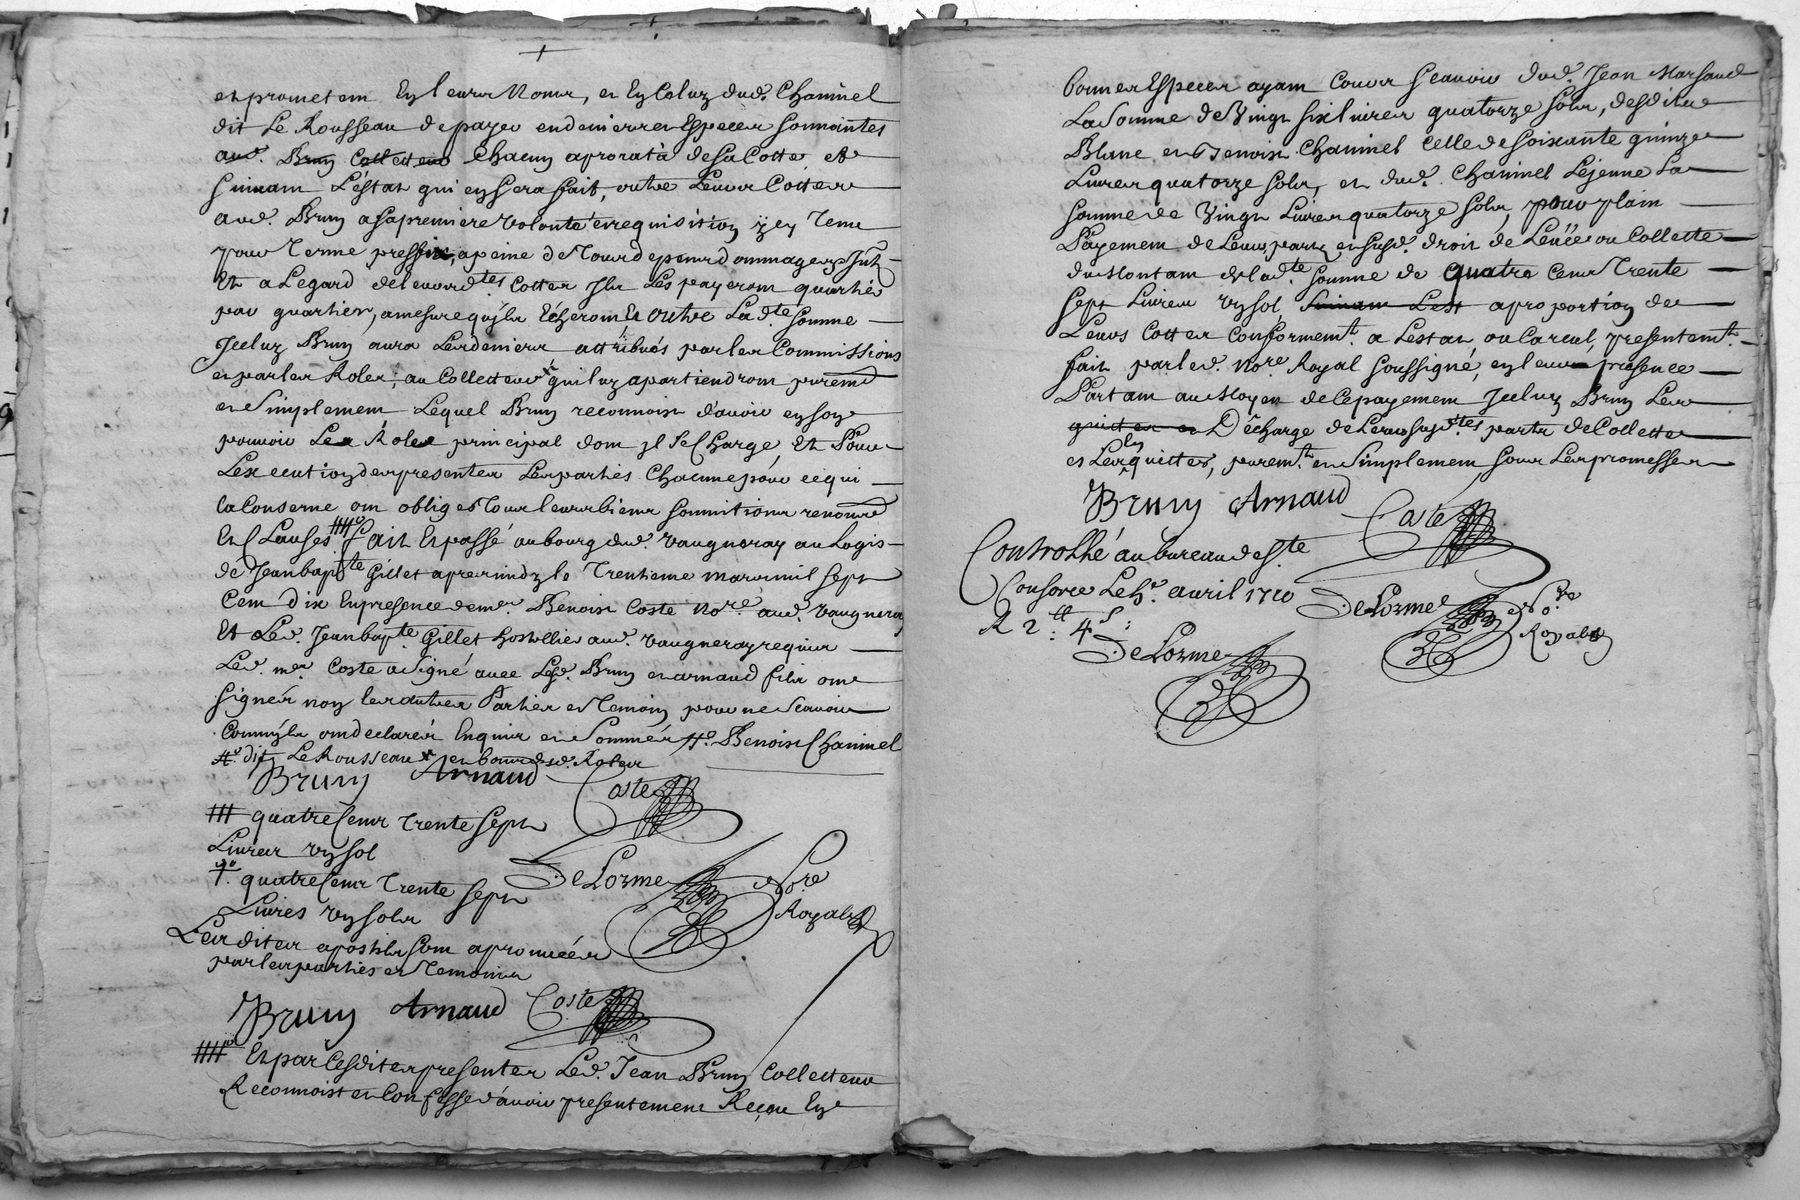 et prometent En leurs Noms, et En Celuy dud. Chaninel
dit Le Rousseau de payer en deniers et Especes sonnantes
aud. Brun Collecteur chacun aprorata de sa Cotte et
suivant L'estat qui en sera fait, outre Leurs Cottes
aud. Brun a sa premiere volonté et requisition y en Tenu
pour Terme prefix, a peine de Tous depens dommages Int
Et a Legard de leursd.tes Cottes Ils Les payeront quartier
par quartier, amesure qu'ils Echeront Et outre La d.te somme
Iceluy Brun aura Les deniers attribués par les Commissions
et par les Roles, au Collecteur qui luy apartiendront purem.t
et Simplement Lequel Brun reconnoist d'avoir en son
pouvoir Les Roles principal dont il se Charge, Et Pour
L'execution des presentes Les parties Chacune pour ce qui
la Conserne ont obligés Tous leurs biens soumitions renonc.
Et Clauses #### fait Et passé au bourg dud. vaugneray au Logis
de Jean bap.te Gillet apres midy le Trentieme mars mil sept
Cent dix En presence de me.r Benoist Coste No.re aud. vaugneray
Et Led. Jean bap.te Gillet hostellier aud. vaugneray requis
Led. m.r Coste a signé avec Led. Brun et arnaud fils ont
signés non les autres Parties et Temoin pour ne scavoir
Comm'ils ont declarés Enquis et Sommés #. Benoist Chaninel
#. dit Le Rousseau
Brun Arnaud Coste
### quatre Cents Trente Sept
Livres un sol
quatre Cents Trente Sept
Livres un sols
DeLorme No.re
Royal
Les dites apostiles sont aprouvées
par les parties et Temoins
Brun Arnaud Coste
#### Et par Cesdites presentes Led. Jean Brun Collecteur
Reconnoist et Confesse d'avoir presentement Reçeu En
bonnes Especes ayant Cours scavoir dud. Jean Marsaud
La Somme de Vingt six livres quatorze sols, desditte
Blanc et Benoist Chaninel Celle de soixante quinze
Livres quatorze sols, et dud. Chaninel Lejeune La
somme de Vingt Livres quatorze sols, pour plain
Payement de Leurs parts et susd. droit de Levée ou Collette
du Montant de la d.te somme de quatre Cents Trente
sept Livres un sol, suivant L'est a proportion de
Leurs Cottes Conformem.t a L'estat ou Calcul, presentem.t
fait par led. No.re Royal soussigné, en leurs presence
Partant au Moyen de Ce payement Iceluy Brun Les
quitte et Décharge de Leurs susd.tes parts de Collette
et Les en quittes, purem.t et Simplement sous Les promesses
Brun Arnaud Coste
Controllé au bureau de S.te
Consorce Le 5.e avril 1710
R 2.tt 4.s
DeLorme No.re
Royal
DeLorme